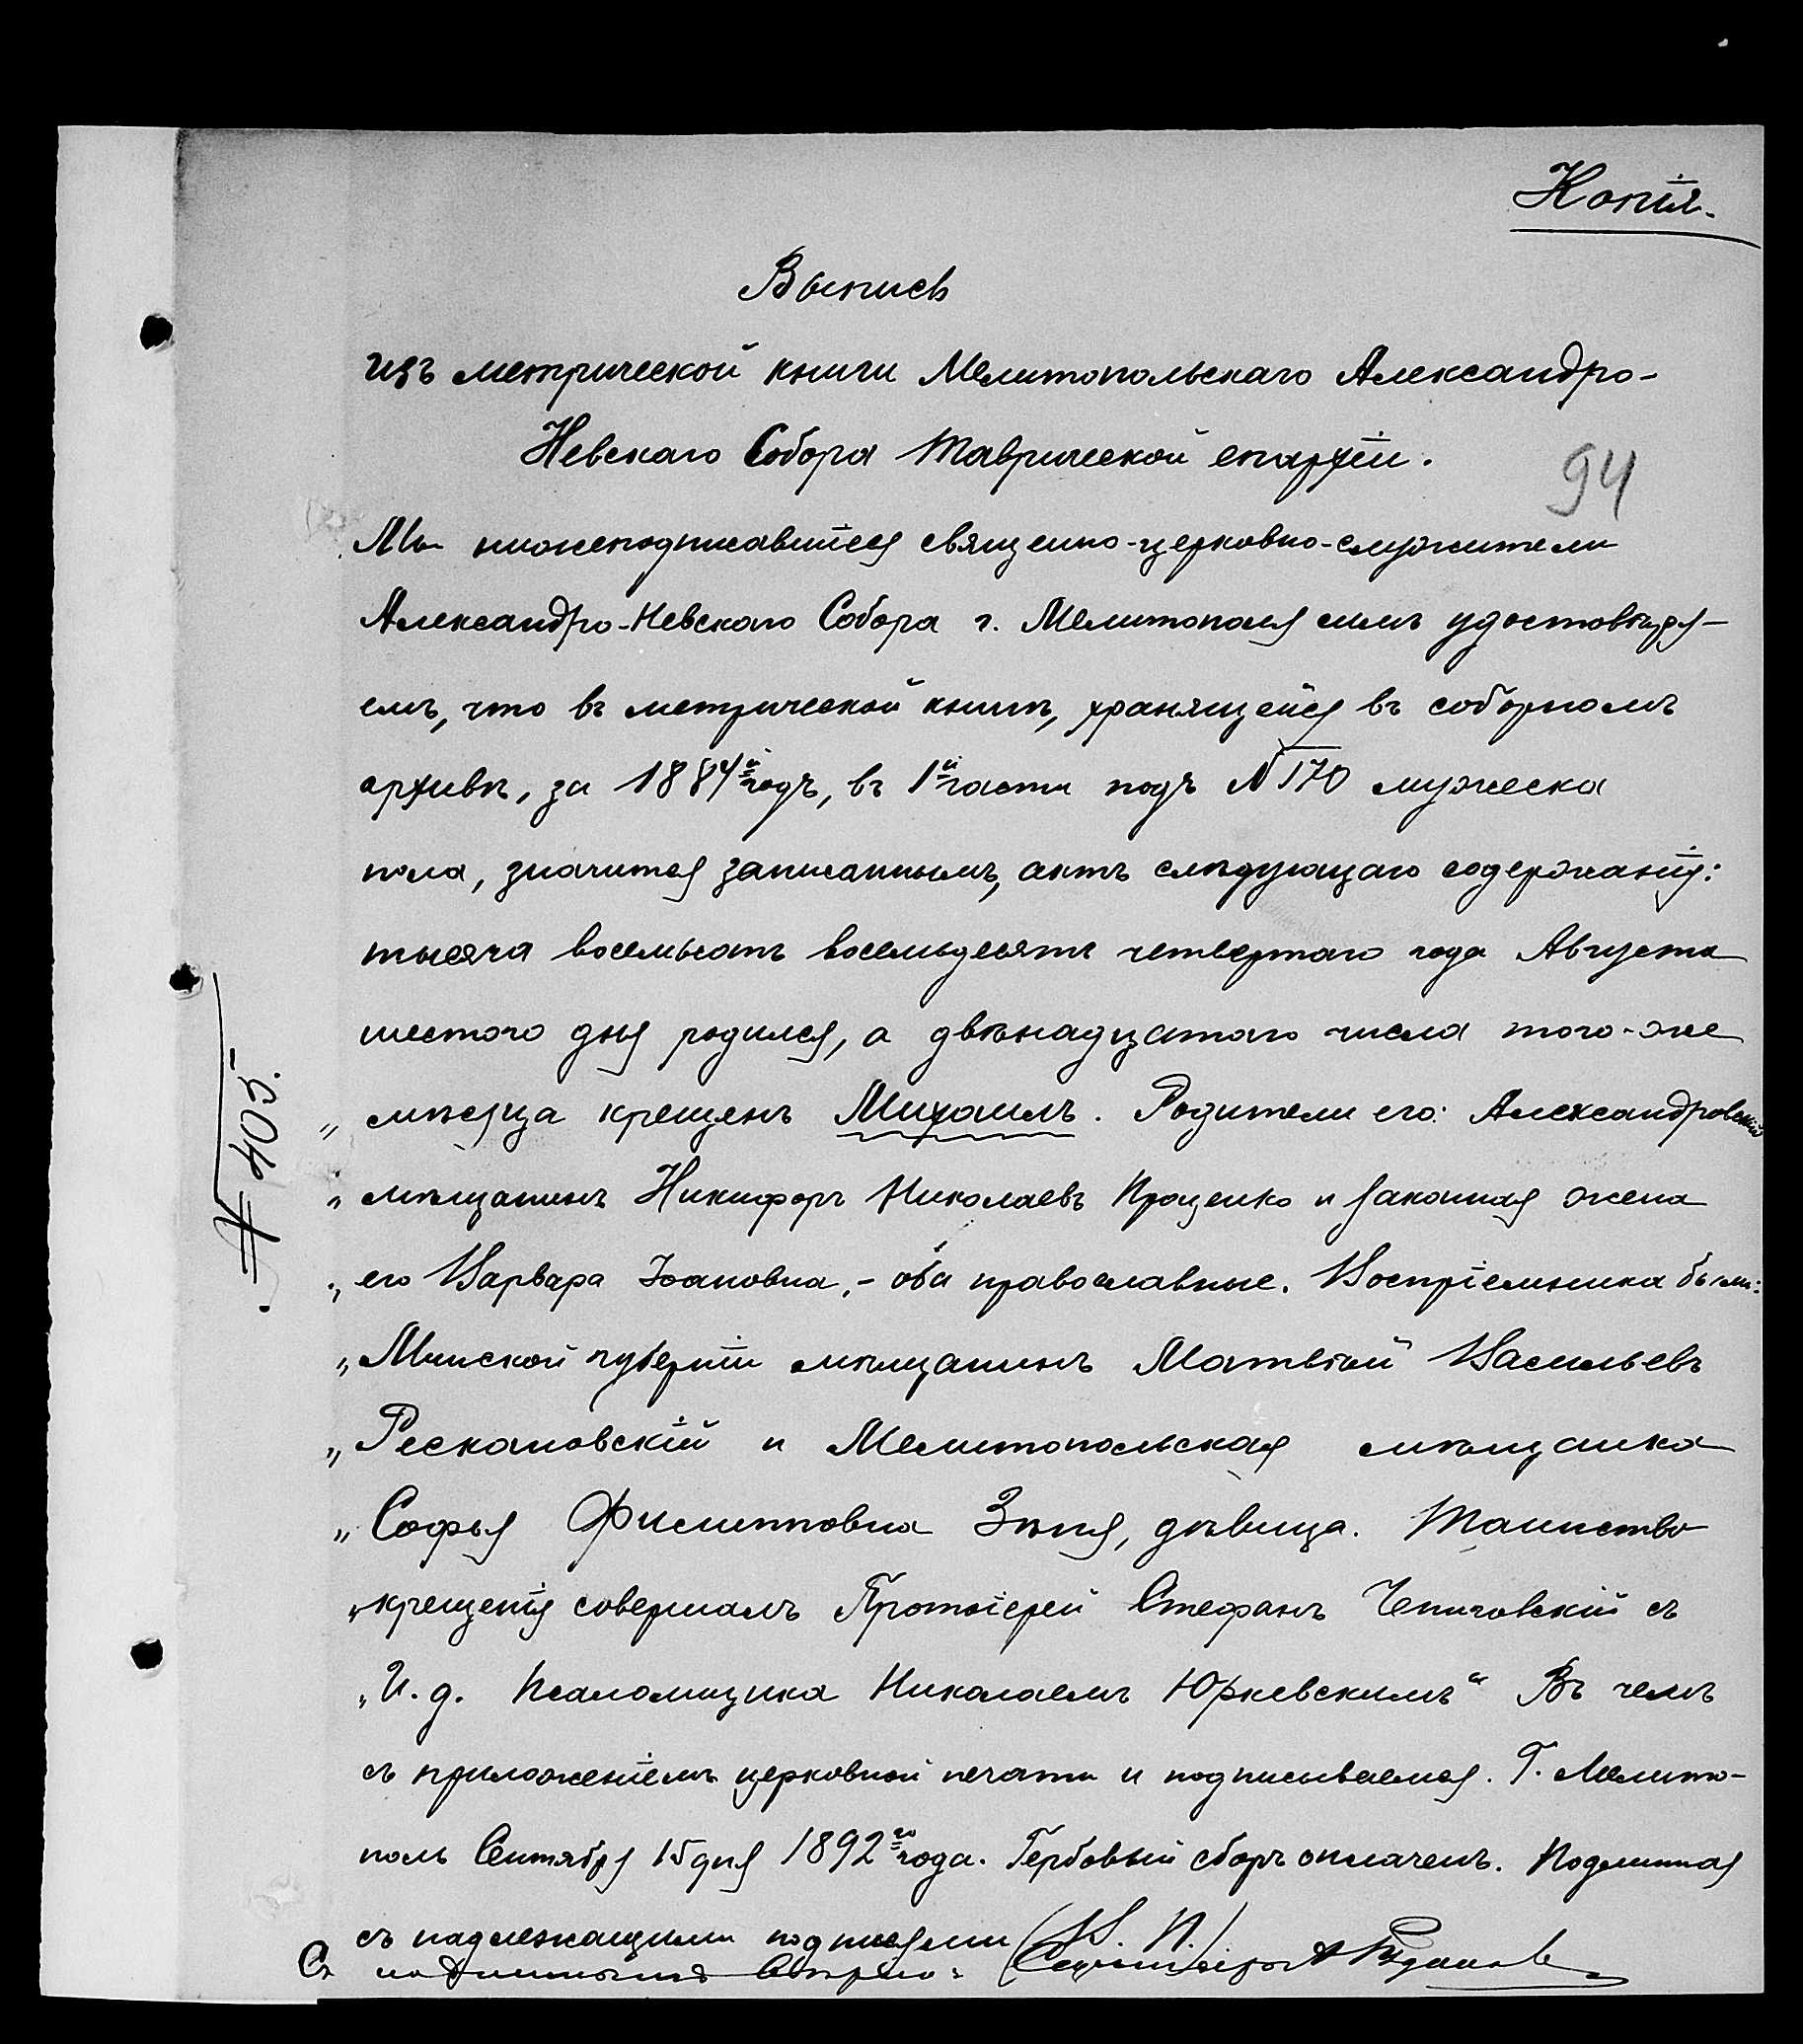 Копія.
Выпись
изъ метрической книги Мелитопольскаго Александро-
Невскаго Собора Таврической епархіи.
94
Мы нижеподписавшіеся священно-церковно-служители
Александро-Невскаго Собора г. Мелитополя симъ удостовѣря-
емъ, что въ метрической книгѣ, хранящейся въ соборномъ
архивѣ, за 1884й годъ, въ 1й части подъ № 170 мужеска
пола, значится записаннымъ, актъ слѣдующаго содержанія:
тысяча восемьсотъ восемьдесятъ четвертаго года Августа
шестого дня родился, а двѣнадцатаго числа того-же
„ мѣсяца крещенъ Михаилъ. Родители его: Александровскій
„ мѣщанинъ Никифоръ Николаевъ Проценко и законная жена
„ его Варвара Іоановна, - оба православные. Воспріемника были:
„ Минской губерніи мѣщанинъ Матвѣй Васильевъ
„ Рескановскій и Мелитопольская мѣщанка
„ Софья Филипповна Зѣня, дѣвица. Таинство
„ крещенія совершалъ Протоіерей Стефанъ Чепиговскій съ
„ И. д. Псаломщика Николаемъ Юркевскимъ“ Въ чемъ
съ приложеніемъ церковной печати и подписываемся. Г. Мелито-
поль Сентября 15 дня 1892го года. Гербовый сборъ оплаченъ. Подлинная
съ надлежащими подписями (М. П.)
Съ подлиннымъ вѣрно: Секретарь
№ 405.